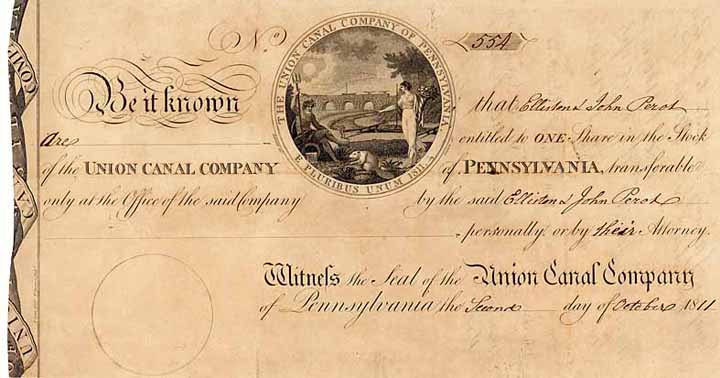 No 554
THE UNION CANAL COMPANY OF PENNSYLVANIA
E PLURIBUS UNUM 1811
Be it known that Elliston & John Perot
are entitled to ONE Share in the Stock
of the UNION CANAL COMPANY of PENNSYLVANIA, transferable
only at the Office of the said Company by the said Elliston & John Perot
personally, or by their Attorney.
Witness the Seal of the Union Canal Company
of Pennsylvania the Second day of October 1811